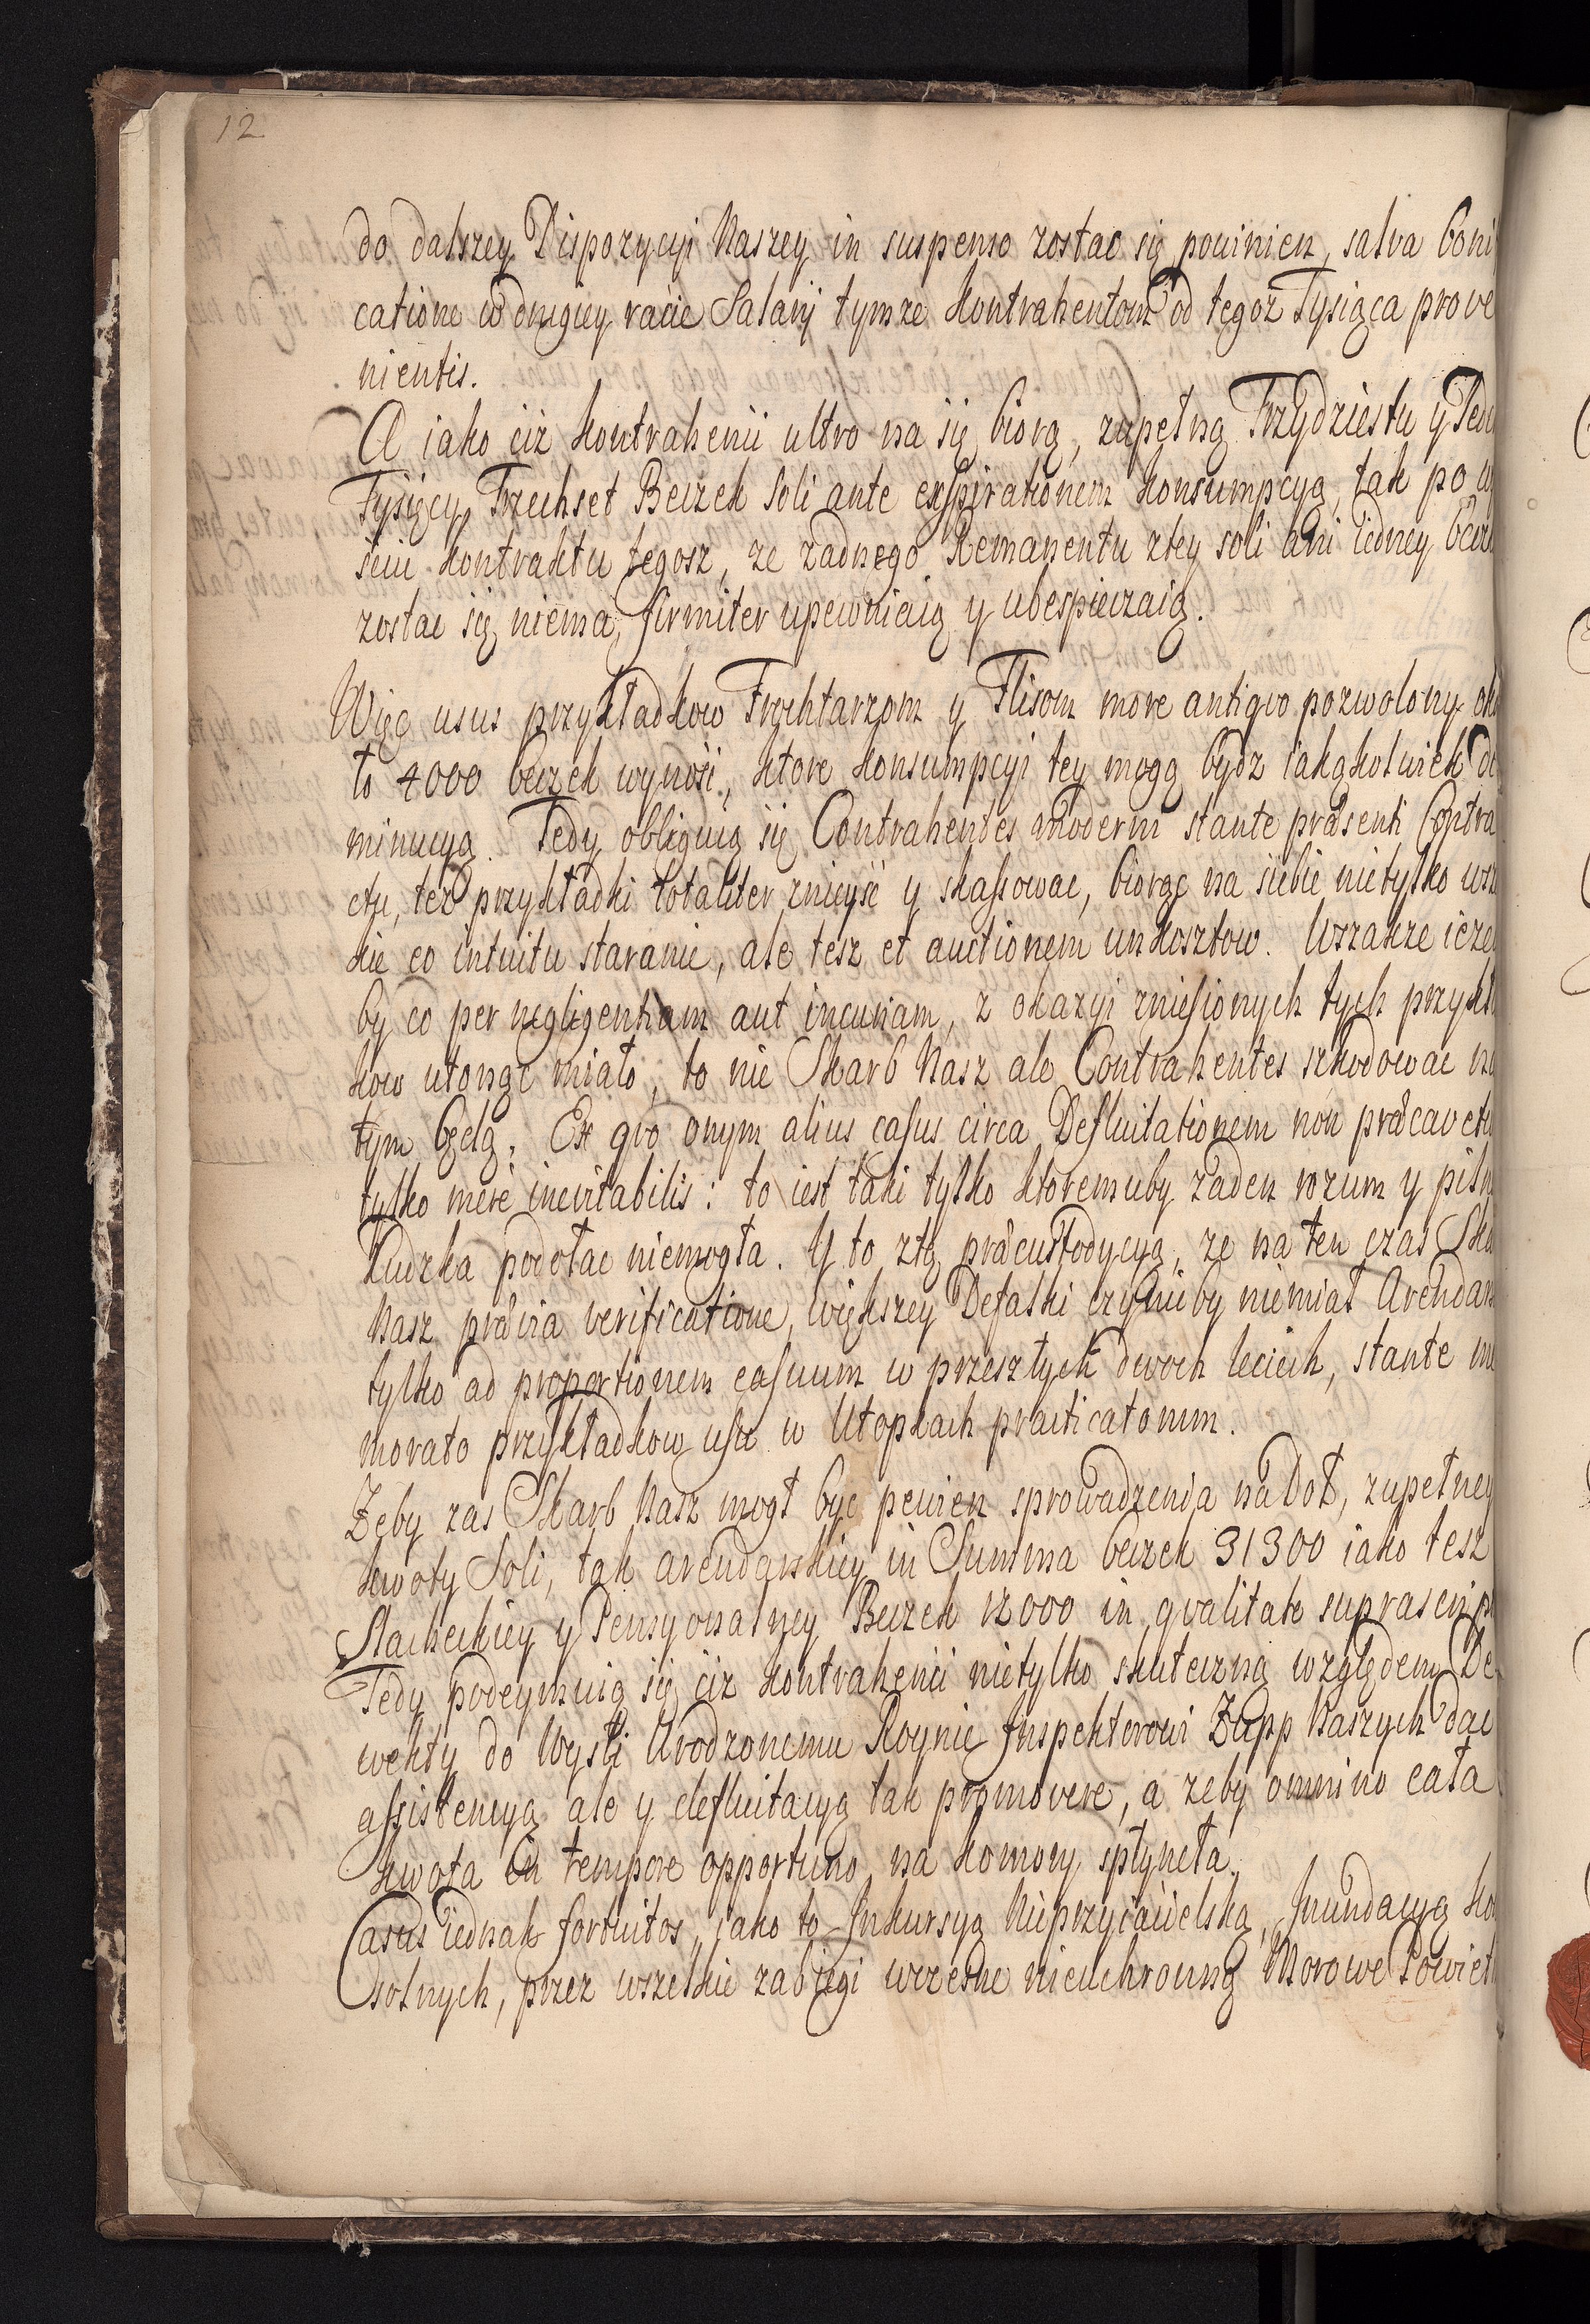 12
do dalszey Dispozycyi Naszey in suspenso zostac się powinien, salva boni
catione w drugiey racie Salarij tymze kontrahentom od tegoz Tysiąca prove
nientis.
A iako ciż kontrahenci ultro na się biorą, zupełną Trzydziestu y Jed
Tysięcy Trzechset Beczek soli ante exspirationem konsumpcyą, tak po
sciu kontraktu tegosz, ze zadnego Remanentu zley soli ani iedney becz
zostac się niema, firmiter upewniaią y ubespieczaią.
Więc usus przykładkow Frochtarzom y Flisom more antiqvo pozwolony oko
to 4000 beczek wynosi, ktore konsumpcyi tey mogą bydz iakąkolwiek di
minucyą. Tedy obliguią się Contrahentes moderni stante præsenti Contra
ctu, tez przykładki totaliter znieyść y skassowac, biorąc na siebie nietylko wsz
kie eo intuitu staranie, ale tesz et auctionem unkosztow. Wszakze ieze
by co per negligentiam aut incuriam, z okazyi zniesionych tych przykł
kow utonąć miało, to nie Skarb Nasz ale Contrahentes szkodowac na
tym będą. Ex qvo onym alius casus circa Defluitationem non præcavetu
tylko mere inevitabilis: to iest taki tylko ktoremuby zaden rozum y piln
Ludzka podołac niemogła. Y to ztą præcustodycyą, ze na ten czas Ska
Nasz prævia verificatione, większey Defalki czynic by niemiał Arendarz
tylko ad proportionem casuum w przeszłych dwoch leciech, stante me
morato przykładkow usu w Utopkach practicatorum.
Zeby zas Skarb Nasz mogł byc pewien sprowadzenia na Doł, zupełney
kwoty Soli, tak arendarskiey in Summa beczek 31300 iako tesz
Slacheckiey y Pensyonalney Beczek 12000 in qvalitate suprascrip
Tedy podeymuią się ciz kontrahenci nietylko skuteczną względem De
wekty do Wysli Urodzonemu Roynie Inspektorowi Zupp Naszych dac
assistencyą ale y defluitacyą tak promovere, a zeby omnino cała
kwota in tempore opportuno na komory spłyneła.
Casus iednak fortuitos, iako to Inkursyą Nieprzyiacielską, Inundacyą ko
solnych, przez wszelkie zabiegi wczesne nieuchronną Morowe Powiet